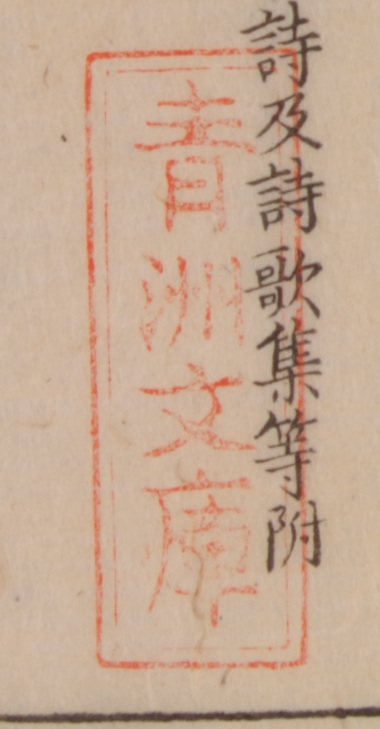 詩及詩歌集等附
青洲文庫